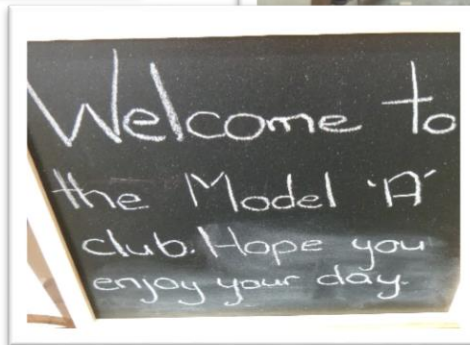 Welcome to
the Model 'A'
club. Hope you
enjoy your day.